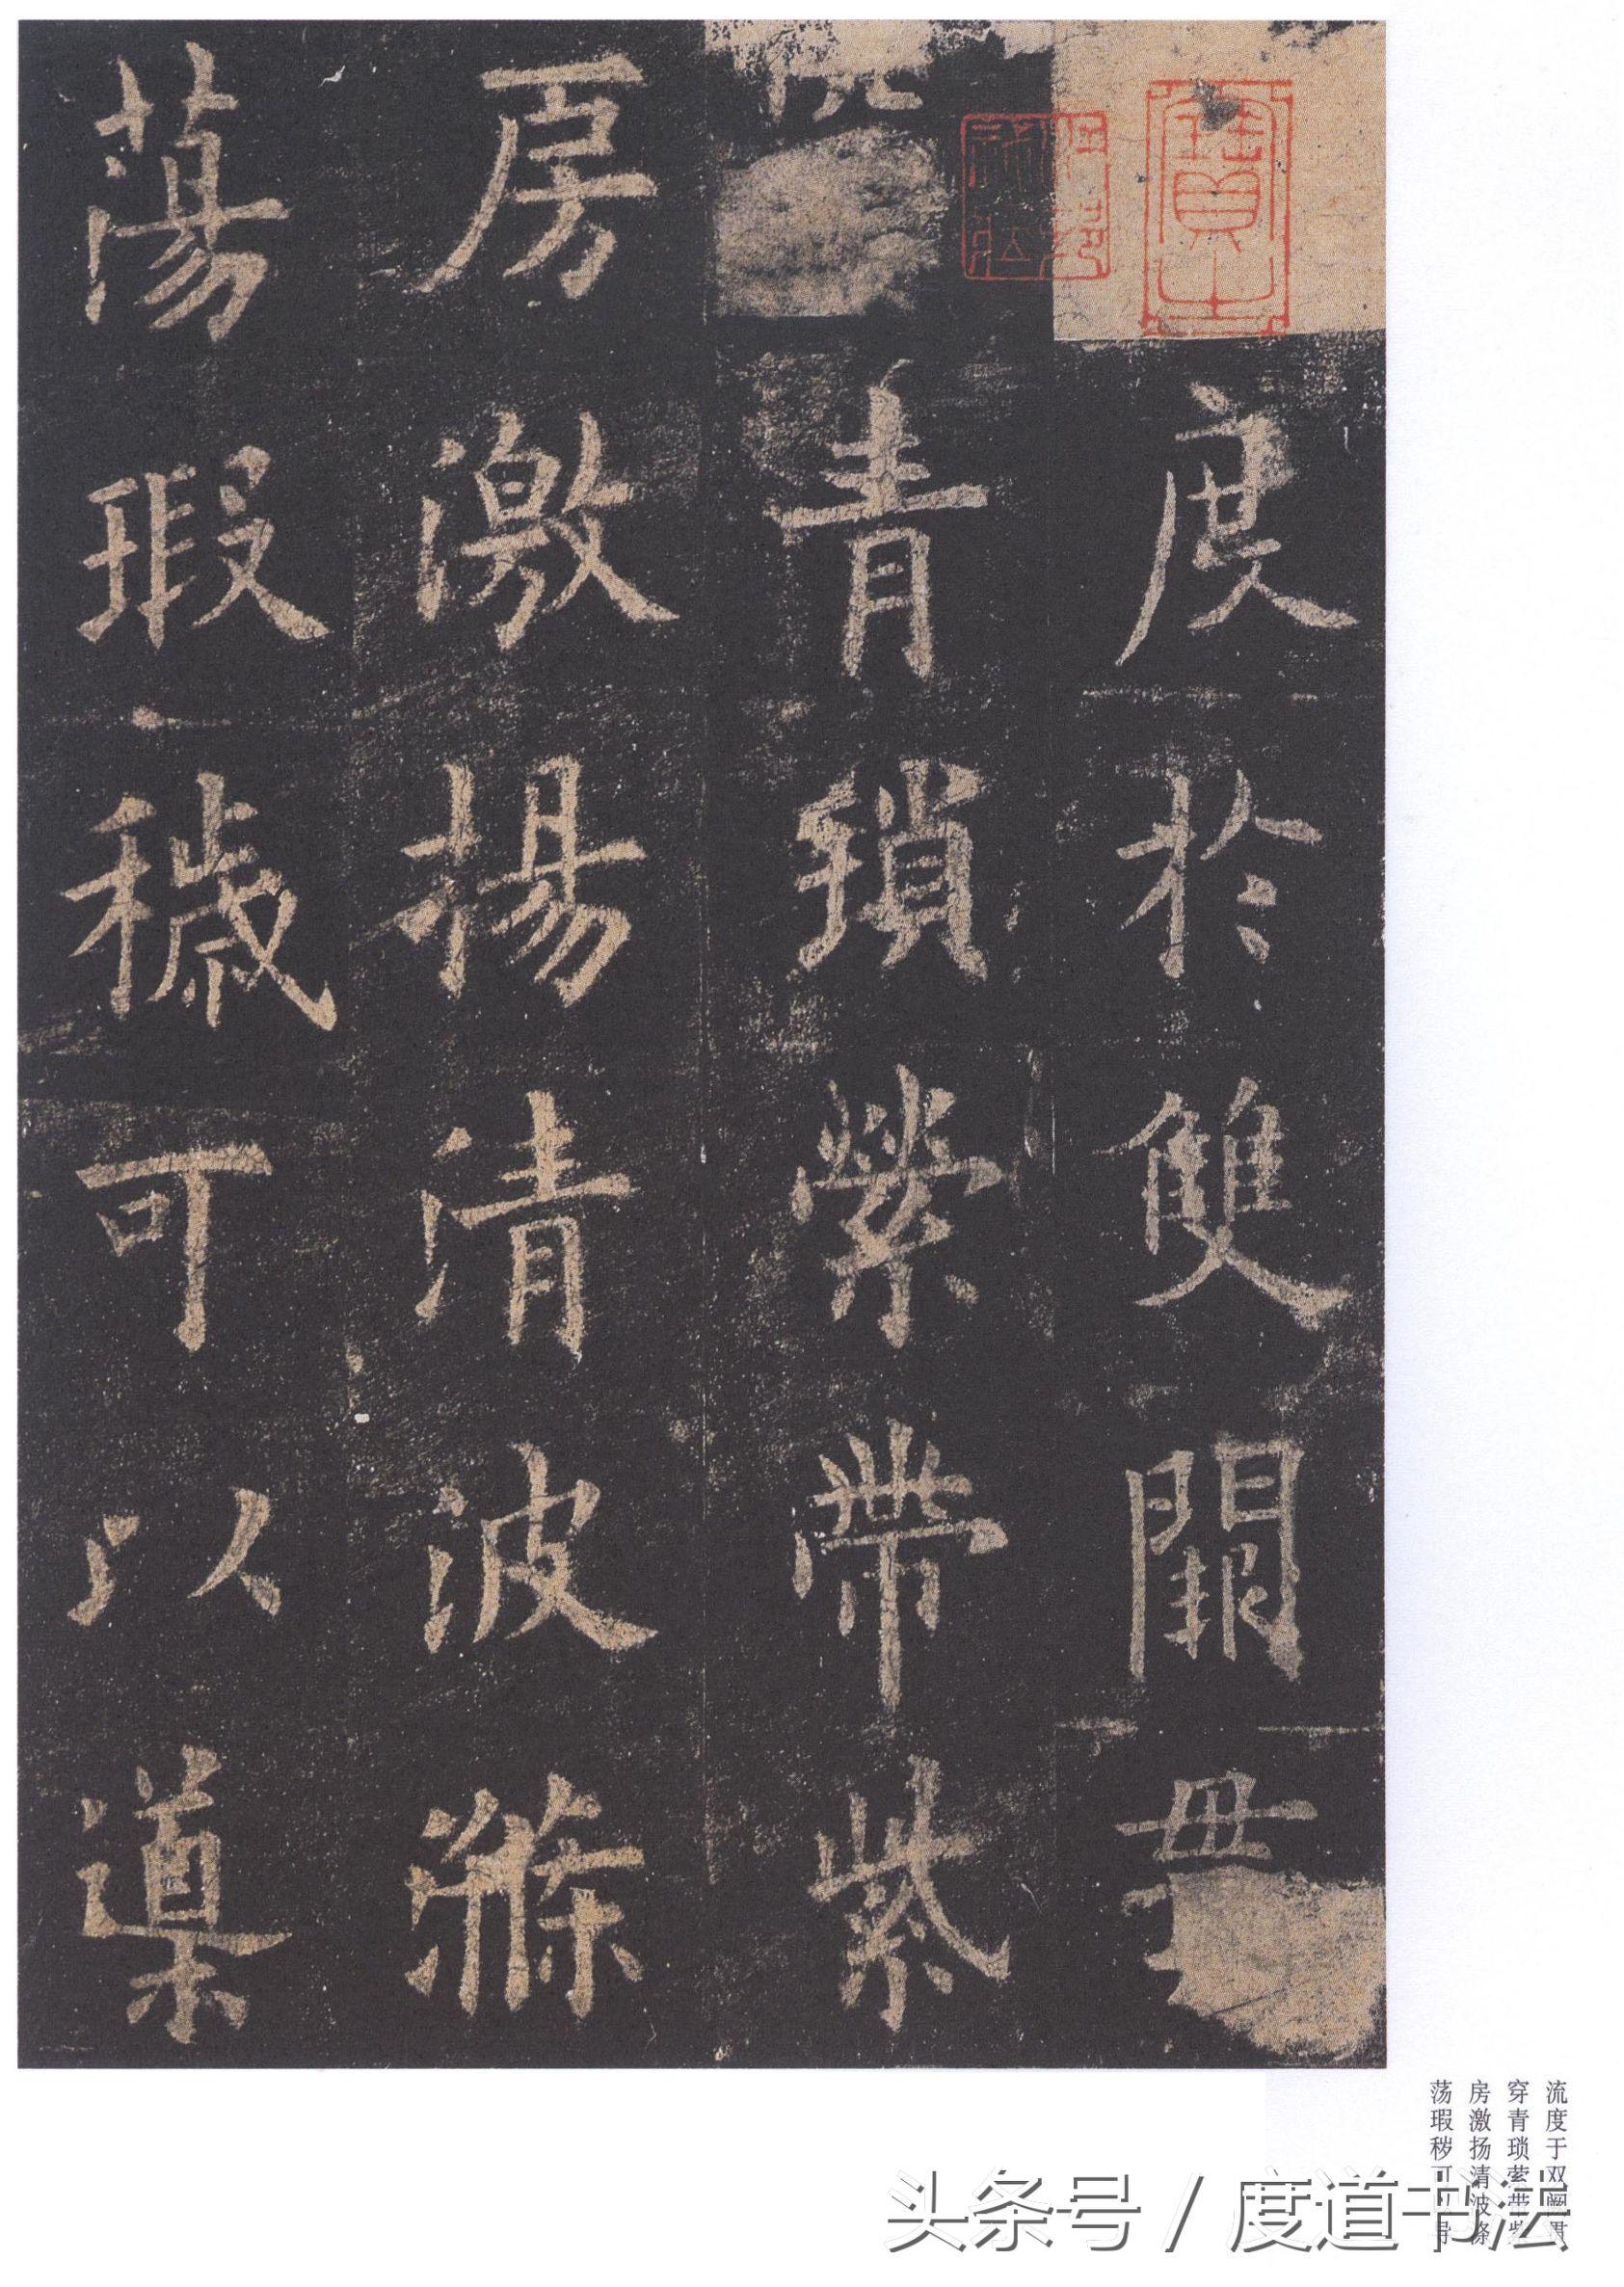 度於雙闕貫
青瑣縈帶紫
房激揚清波滌
蕩瑕穢可以導
流度于双阙贯
穿青琐萦带紫
房激扬清波涤
荡瑕秽可以导
头条号 / 度道书法